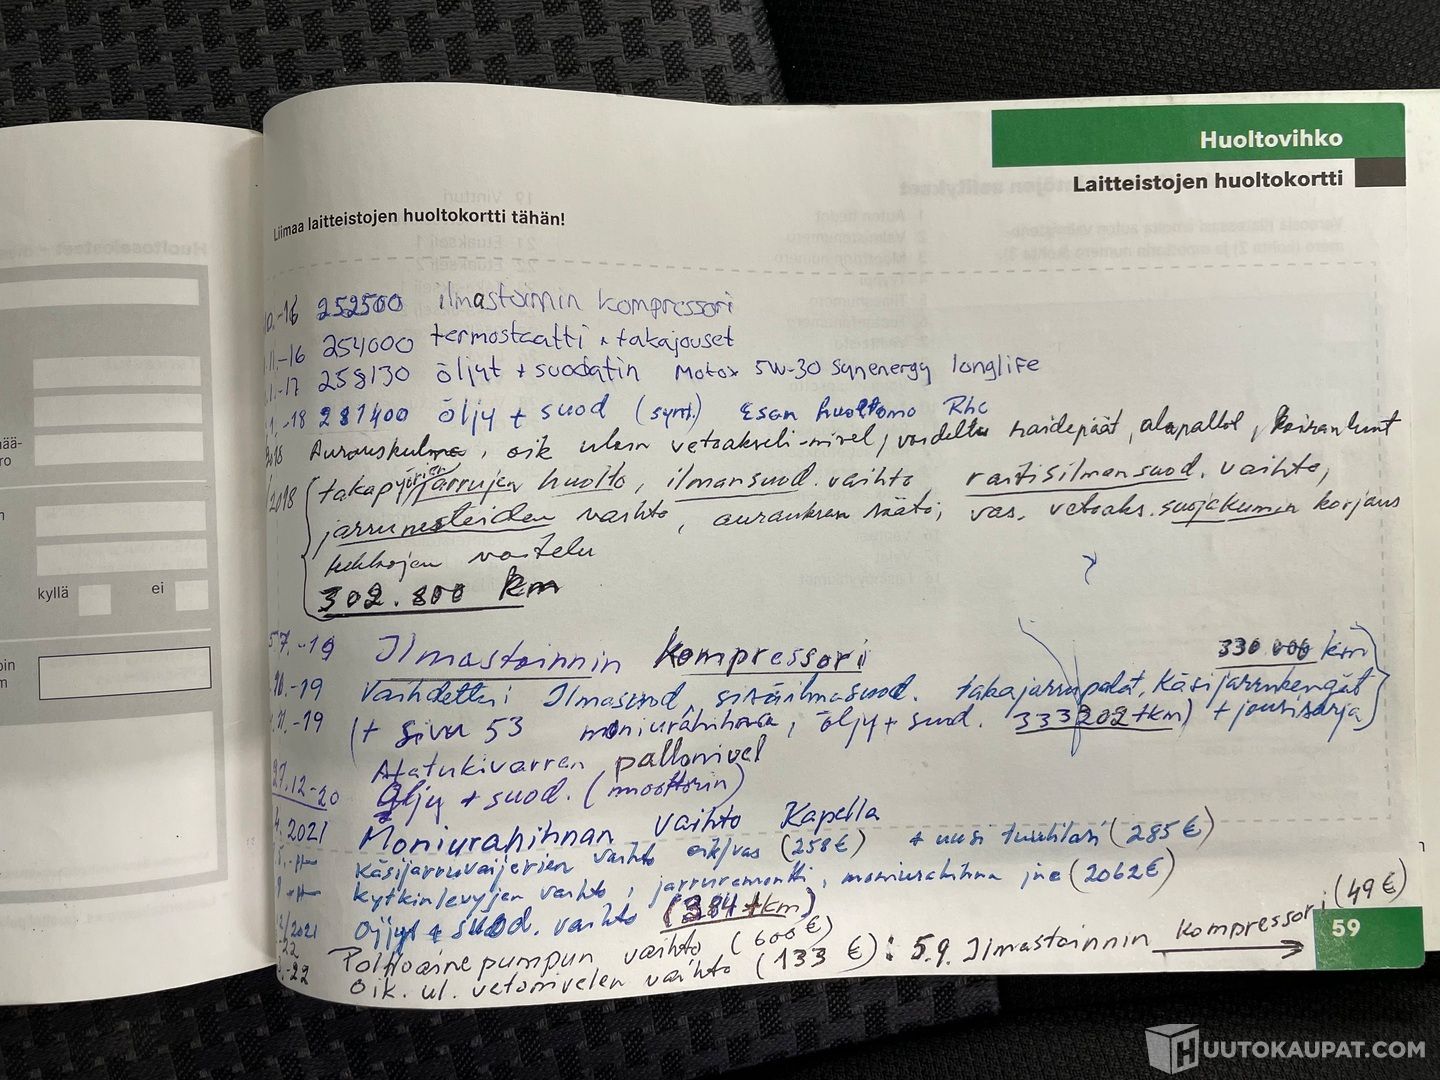 Huoltovihko
Laitteistojen huoltokortti
Liimaa laitteistojen huoltokortti tähän!
-16 252500 ilmastoinnin kompressori
.11.-16 254000 termostaatti + takajouset
.1.-17 258130 öljyt + suodatin Motox 5W-30 Synenergy longlife
.-18 281400 öljy + suod (synt.) Esan huoltamo Rhe
Aurauskulma, oik ulom vetoakseli-nivel, voideltu raidepäät, alapallot, koiranluut
/2018 takapyörien jarrujen huolto, ilmansuod. vaihto, raitisilmansuod. vaihto,
jarrunesteiden vaihto, aurauksen säätö, vas. vetoaks. suojakumin korjaus
voitelu
302.800 km
5.7.-19 Ilmastoinnin kompressori 330 000 km
.10.-19 Vaihdettu: Ilmasuod, sisäilmasuod. takajarrupalat, käsijarrukengät
.11.-19 (+ sivu 53 moniurahihna, öljy + suod. 333202 tkm) + jousisarja
Alatukivarren pallonivel
27.12-20 Öljy + suod. (moottorin)
4.2021 Moniurahihnan vaihto Kapella
käsijarruvaijerien vaihto oik/vas (258€) + uusi (285€)
kytkinlevyjen vaihto, jarruremontti, moniurahihna jne (2062€)
12/2021 Öljyt + suod. vaihto (384 tkm)
-22 Polttoainepumpun vaihto (600€)
.-22 Oik. ul. vetonivelen vaihto (133 €) : 5.9. Ilmastoinnin kompressori (49€)
59
kyllä ei
HUUTOKAUPAT.COM